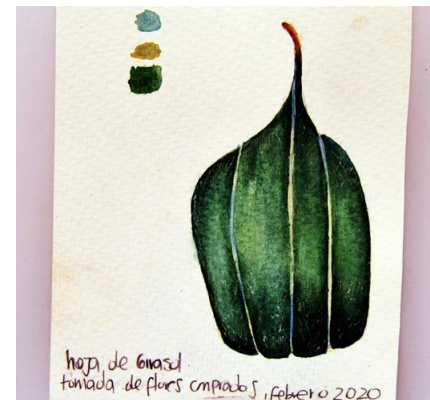 hoja de Girasol.
tomada de flores compradas, febrero 2020